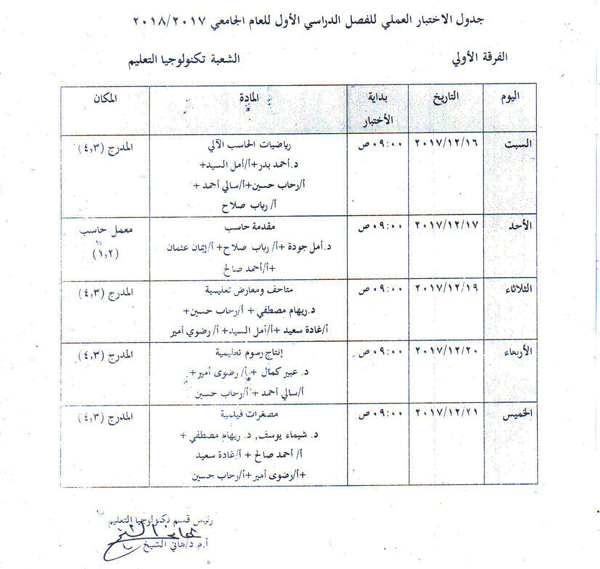 جدول الاختبار العملي للفصل الدراسي الأول للعام الجامعي ٢٠١٨/٢٠١٧
الفرقة الأولي الشعبة تكنولوجيا التعليم
اليوم التاريخ بداية الأختبار المادة المكان
السبت ٢٠١٧/١٢/١٦ ٠٩:٠٠ ص رياضيات الحاسب الآلي المدرج (٤،٣)
د.أحمد بدر+أ/أمل السيد+
أ/رحاب حسين+أ/سالي أحمد +
أ/ رباب صلاح
الأحد ٢٠١٧/١٢/١٧ ٠٩:٠٠ ص مقدمة حاسب معمل حاسب
د.أمل جودة +أ/ رباب صلاح+أ/إيمان عثمان (١،٢)
+أ/أحمد صالح
الثلاثاء ٢٠١٧/١٢/١٩ ٠٩:٠٠ ص متاحف ومعارض تعليمية المدرج (٤،٣)
د.ريهام مصطفي + أ/رحاب حسين+
أ/غادة سعيد+أ/أمل السيد+أ/ رضوي أمير
الأربعاء ٢٠١٧/١٢/٢٠ ٠٩:٠٠ ص إنتاج رسوم تعليمية المدرج (٤،٣)
د. عبير كمال +أ/ رضوى أمير+
أ/سالي أحمد +أ/رحاب حسين
الخميس ٢٠١٧/١٢/٢١ ٠٩:٠٠ ص مصغرات فيلمية المدرج (٤،٣)
د. شيماء يوسف, د. ريهام مصطفي +
أ/ أحمد صالح +أ/غادة سعيد
+أ/رضوى أمير +أ/رحاب حسين
رئيس قسم تكنولوجيا التعليم
أ.م.د/هاني الشيخ